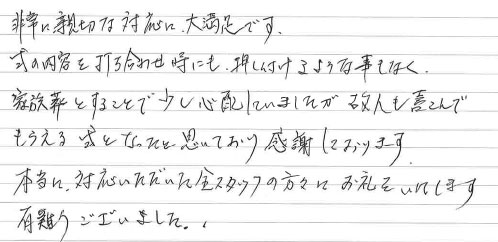 非常に親切な対応に、大満足です。
式の内容を打ち合わせ時にも、押し付けるような事もなく、
家族葬とすることで少し心配していましたが 故人も喜こんで
もらえる 式となったと思いており 感謝しております
本当に、対応いただいた全スタッフの方々に お礼をいたします
有難うございました。